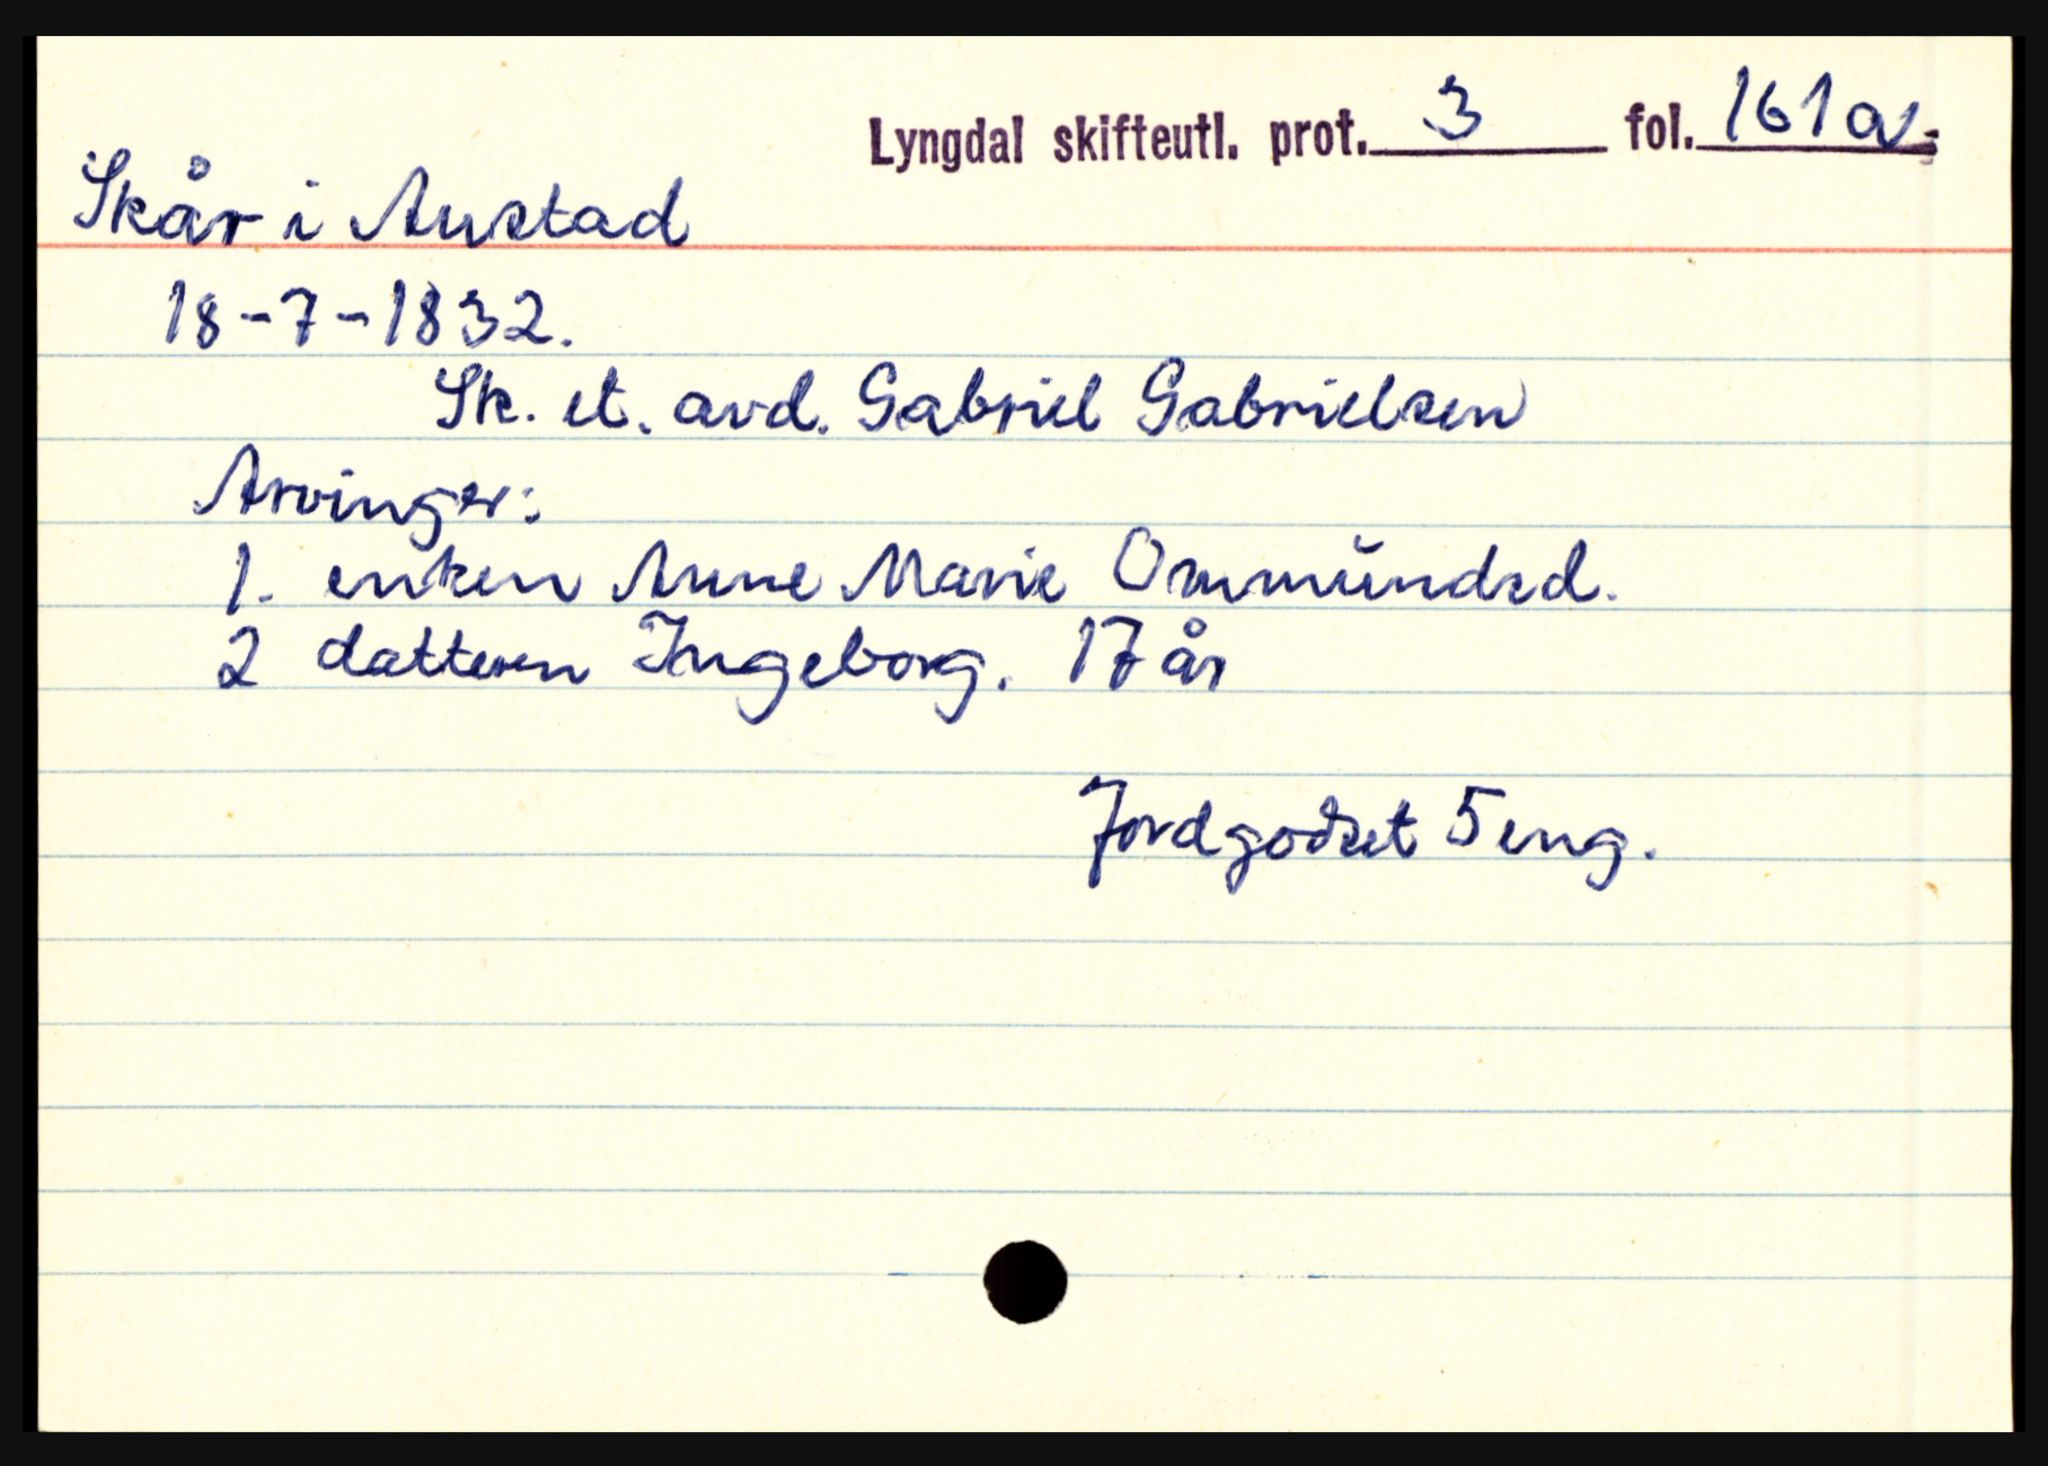 Lyngdal skifteutl. prot. 3 fol. 161a
Skår i Austad
18-7-1832.
Sk. et. avd. Gabriel Gabrielsen
Arvinger:
1. enken Anne Marie Ommŭndsd.
2 datteren Ingeborg. 17 år
Jordgodset 5 eng.